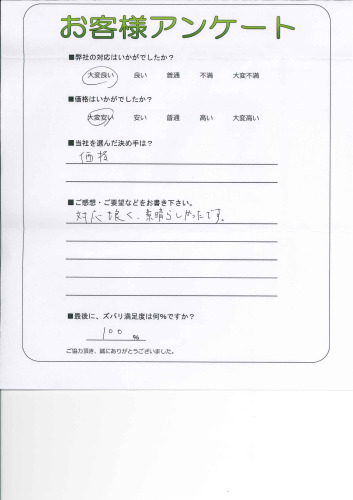 お客様アンケート
■弊社の対応はいかがでしたか?
大変良い 良い 普通 不満 大変不満
■価格はいかがでしたか?
大変安い 安い 普通 高い 大変高い
■当社を選んだ決め手は?
価格
■ご感想・ご要望などをお書き下さい。
対応良く、素晴らしかったです。
■最後に、ズバリ満足度は何%ですか?
100 %
ご協力頂き、誠にありがとうございました。